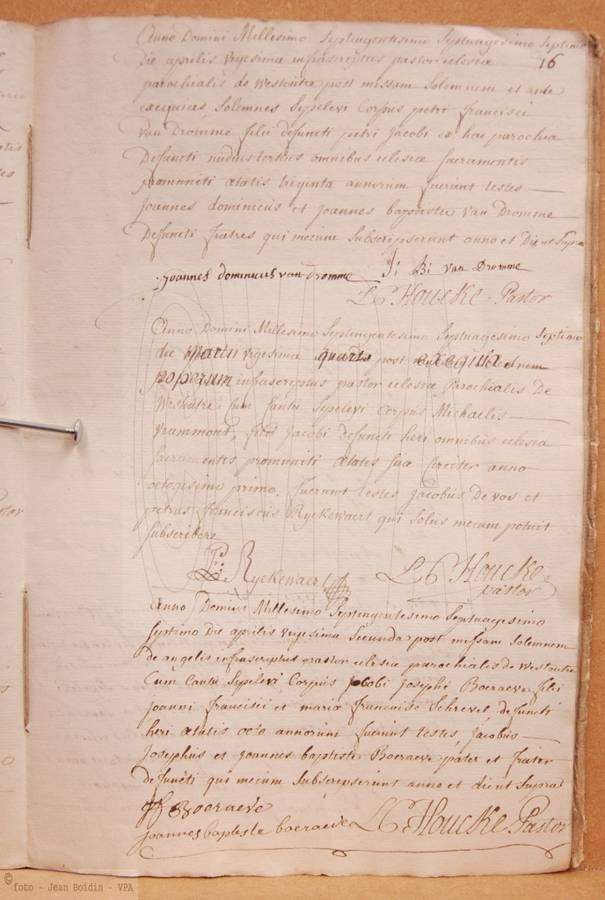 16
Anno Domini Millesimo Septingentesimo Septuagesimo Septimo
Die aprilis vigesima infrascriptus pastor eclesiæ
parochialis de Westoutre post missam Solemnem et ante
exequias Solemnes Sepelevi Corpus petri francisci
van Dromme filii defuncti petri Jacobi ex hac parochia
Defuncti omnibus eclesiæ Sacramentis
premuniti ætatis triginta annorum fuerunt testes
Joannes dominicus et joannes baptista van Dromme
Defuncti fratres qui mecum Subscripserunt anno et Die ut Supra
joannes dominicus van Dromme J: B: van Dromme
L C Houcke Pastor
Anno Domini Millesimo Septingentesimo Septuagesimo Septimo
die martii vigesima quarta post exequias
pauperum infrascriptus pastor eclesiæ parochialis De
Westoutre Cum Cantu Sepelevi Corpus Michaelis
vrammont, Jacobi defuncti heri omnibus eclesiæ
Sacramentis premuniti ætatis suæ Circiter anno
octogesimo primo. fuerunt testes Jacobus De vos et
petrus franciscus Ryckewaert qui Solus mecum potuit
Subscribere
P: F: Ryckewaert L C Houcke
pastor
Anno Domini Millesimo Septingentesimo Septuagesimo
Septimo Die aprilis vigesima Secunda post missam Solemnem
de angelis infrascriptus pastor eclesiæ parochialis de Westoutre
Cum Cantu Sepelevi Corpus Jacobi Josephi Boeraeve filii
joanni francisci et mariæ franciscæ Schrevel defuncti
heri ætatis octo annorum fuerunt testes Jacobus
Josephus et joannes baptista Boeraeve pater et frater
defuncti qui mecum Subscripserunt anno et die ut Supra
Boeraeve
joannes baptiste boeraeve L C Houcke Pastor
© foto - Jean Boidin - VPA